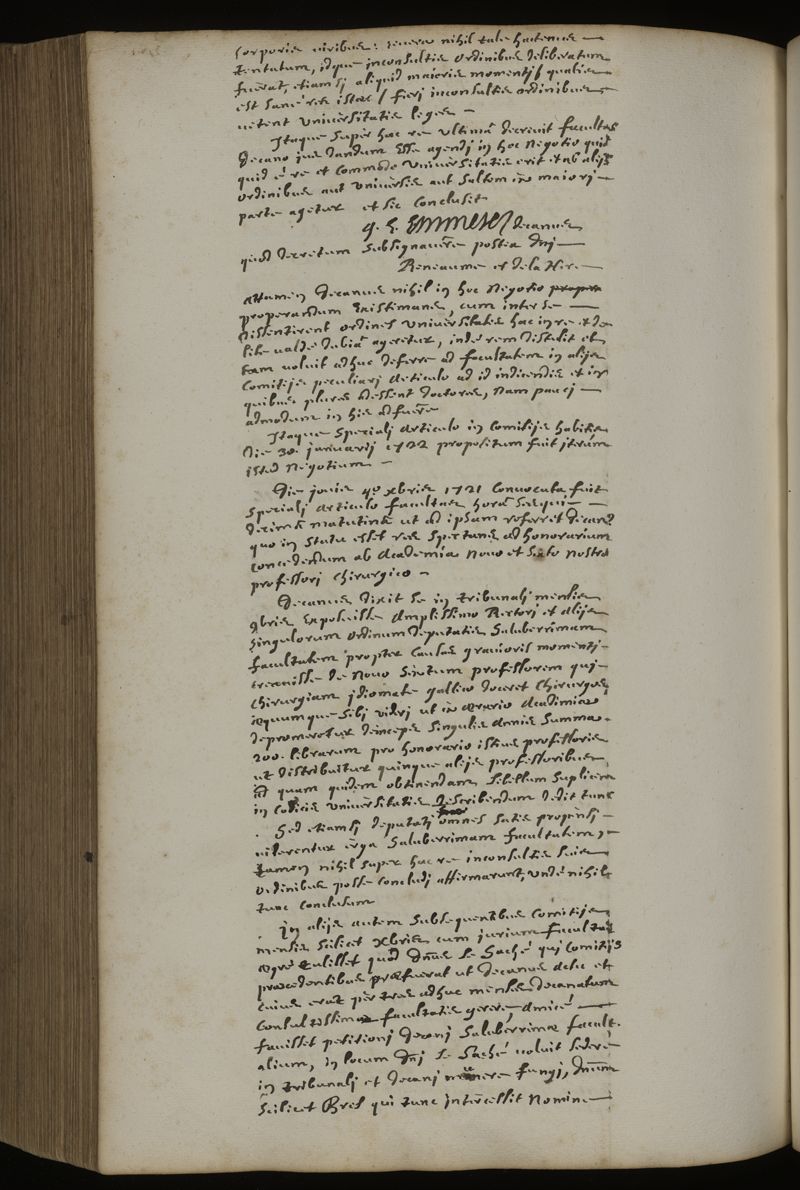 corporis viribus: revera nihil tale hactenus —
tentatum, idque inconsultis ordinibus deliberatum
fuerat, etiamsj aliquid maioris momentj / qualis
est sane res istæc / fierj inconsultis ordinibus
vetent Universitatis leges —
Itaque super hac re ultima decrevit facultas
Decano jus dandum esse agendj in hoc negotio quid
quid è re et commodo Universitatis erit et ab alijs
ordinibus aut universis aut saltem in maiorj —
parte agetur et sic conclusit
Emmerez / decanus
quod decretum subsignavere postea dnj —
Reneaume et de la Hire —
Attamen decanus nihil in hoc negotio propera
properandum existimans, cum inter se —
dissentirent ordines Universitatis hac in re et de
lite valde dubia ageretur, inde rem distulit et
eam voluit adhuc deferre ad facultatem in alijs
Comitijs peculiarj articulo ad id indicendis et in
quibus plures adessent doctores, nam paucj —
admodum in his adfuere
Itaque specialj articulo in comitijs habitis
die 30. januarij 1722 propositum fuit iterum
istud negotium —
Die jovis 4º xbris 1721 convocata fuit
specialj articulo facultas hora sesquj —
decima matutina ut ad ipsam referret decanus
quo in statu esset res spectans ad honorarium
concedendum ab Academia novo et sexto nostro
professorj chirurgico —
Decanus dixit se in tribunalj mensis
9bris exposuisse Amplissimo Rectorj et alijs
singulorum ordinum deputatis saluberrimam
facultatem propter causas gravioris momentj
creavisse de novo sextum professorem quj —
chirurgiam idiomate gallico doceret chirurgos
æquumque sibj viderj ut ex ærario Academiæ
depromeretur deinceps singulis annis summa
200. librarum pro honorario istius professoris
ut distribuitur quinque alijs professoribus
ad quam quidem obtinendam libellum suplicem
in codicis Universitatis describendum dedit tunc
Sed etiamsj deputatj omnes satis propensj —
viderentur erga saluberrimam facultatem,
tamen nihil super hac re inconsultis suis
ordinibus posse concludj affirmarunt, unde nihil
tunc conclusum
In alijs autem subsequentibus comitijs
mensis scilicet xbris cum jurium facultas
ægre tulisset quod dnus le Saché quj comitijs
præcedentibus præfuerat ut decanus
cuius erat per tres adhuc menses decanatum
consultissimæ facultatis gerere, amice —
favisset petitionj decanj saluberrimæ facult.
alium, in locum dnj le Saché voluit sedere
in tribunalj et decanj munere fungj, dnum
scilicet Bres quj tunc intercessit nomine —